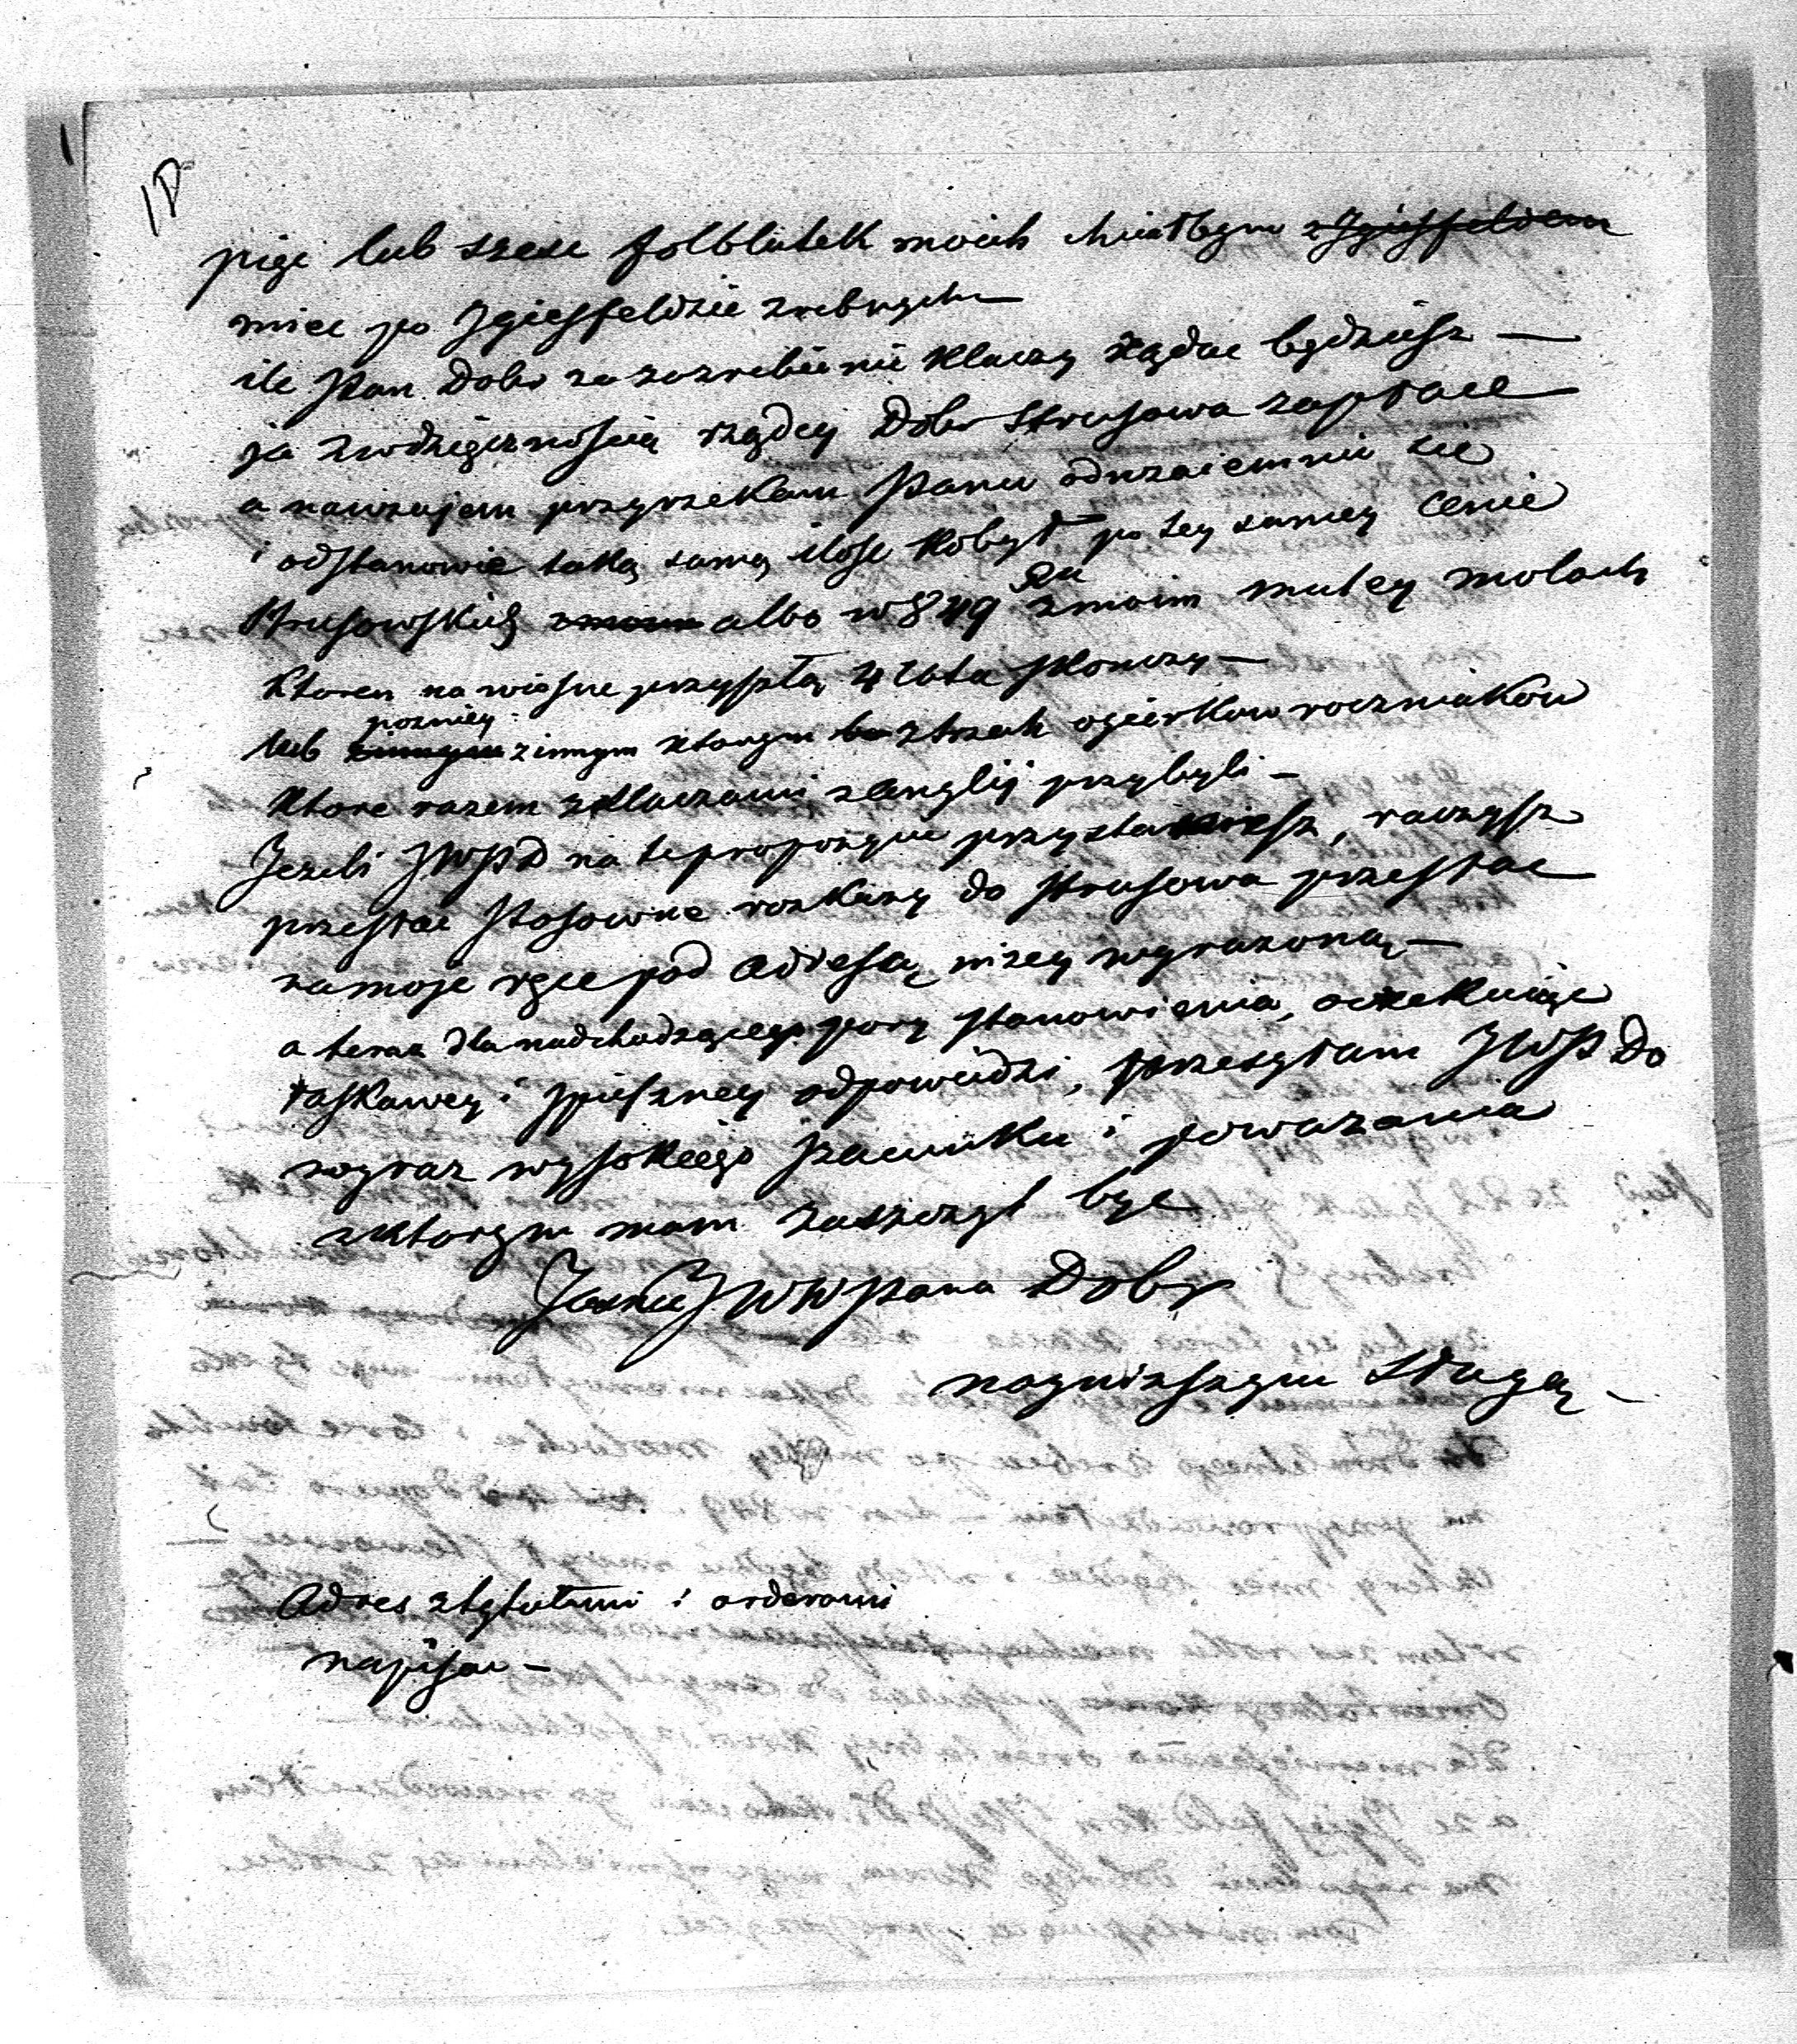 pięc lub szesc folblutek moich chciałbym z Igiesfeldem
miec po Igiesfeldzie zrebnych
ile Pan Dobr za zazrebienie Klaczy rządac będziesz —
ja zwdzięcznoscią rządcy Dobr Strusowa zapłace
a nawzajem przyrzekam Panu odwzaiemnic sie
i odstanowic taką samą ilosc Kobył po tey samey Cenie
Strusowskich albo w 849 zmoim muley moloch
Ktoren na wiosne przyszłą 4 lata skonczy —
lub pozniey zinnym ktorym ztrzech ogierkow roczniakow
Ktore razem zKlaczami zAnglij przybyli —
Jezeli JWPD na te propozycie przystaniesz, raczysz
przesłac stosowne rozkazy do Strusowa przesłac
na moje ręce pod Adresą nizey wyrazoną —
a teraz dla nadchodzącego pory stanowienia, oczekuiąc
łaskawey i spieszney odpowiedzi, przesyłam JWP Do
wyraz wysokiego szacunku i powazania
zktorym mam zaszczyt byc
JWWPana Dobr
nayniższym Sługą —
Adres ztytułami i orderami
napisac —